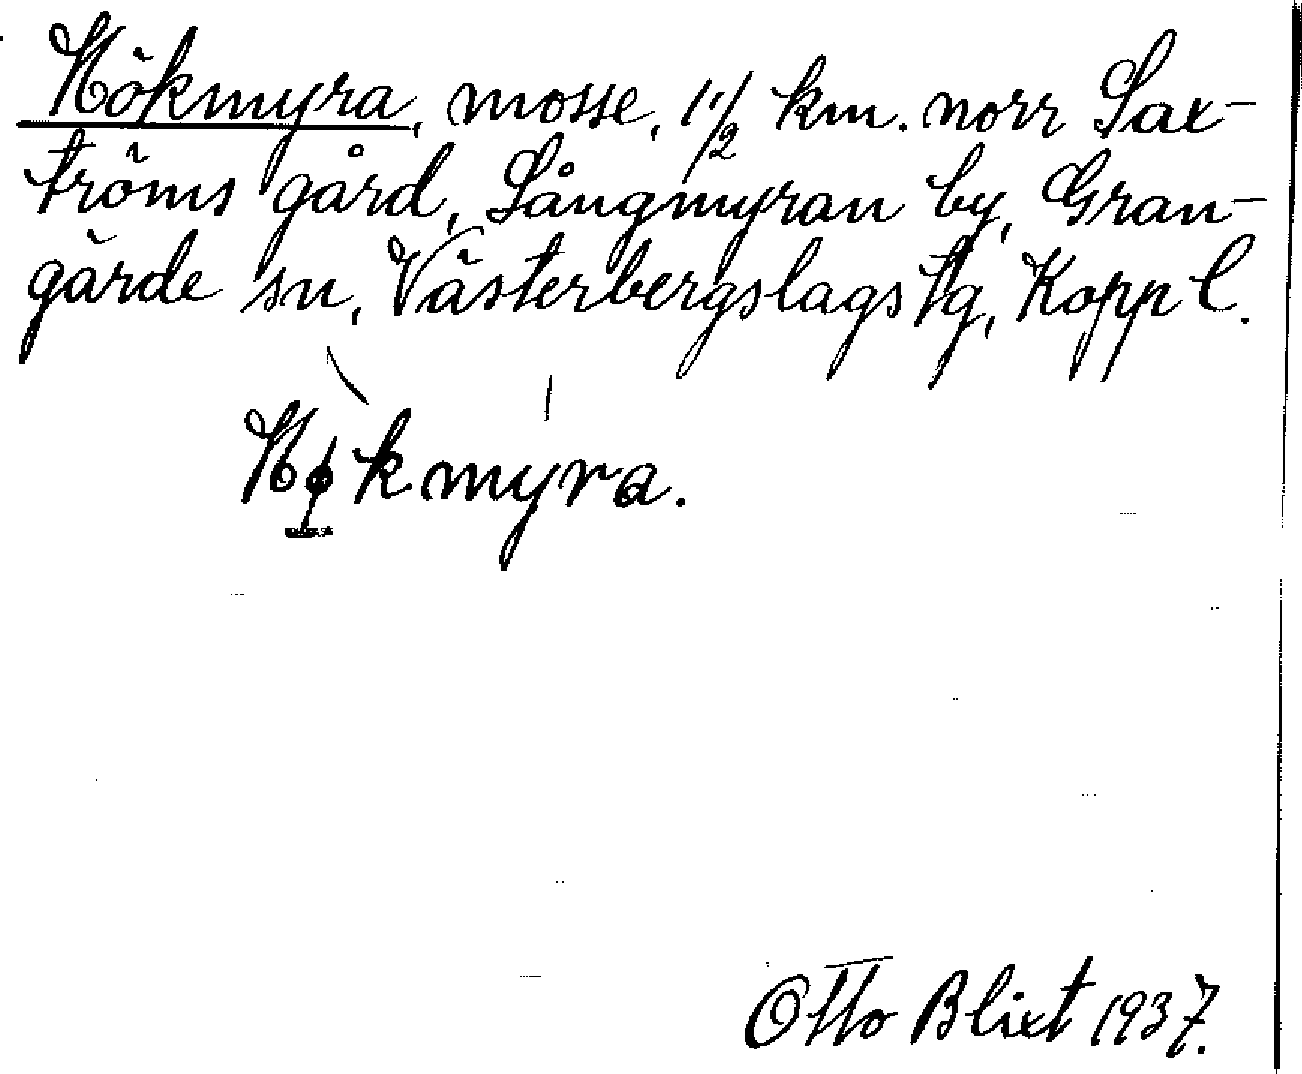 Hökmyra, mosse, 1 1/2 km. norr Sax-
tröms gård, Långmyran by, Gran-
gärde sn, Västerbergslags tg, Kopp l.
Hφkmyra.
Otto Blixt 1937.